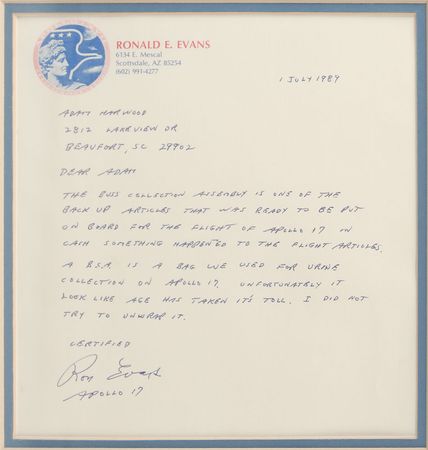 RONALD E. EVANS
6134 E. Mescal
Scottsdale, AZ 85254
(602) 991-4277
1 JULY 1989
ADAM HARWOOD
2812 LAKEVIEW DR
BEAUFORT, SC 29902
DEAR ADAM
THE BUSS COLLECTION ASSEMBLY IS ONE OF THE
BACK UP ARTICLES THAT WAS READY TO BE PUT
ON BOARD FOR THE FLIGHT OF APOLLO 17 IN
CASH SOMETHING HAPPENED TO THE FLIGHT ARTICLES.
A B.S.A. IS A BAG WE USED FOR URINE
COLLECTION ON APOLLO 17. UNFORTUNATELY IT
LOOK LIKE AGE HAS TAKEN IT'S TOLL. I DID NOT
TRY TO UNWRAP IT.
CERTIFIED
Ron Evans
APOLLO 17